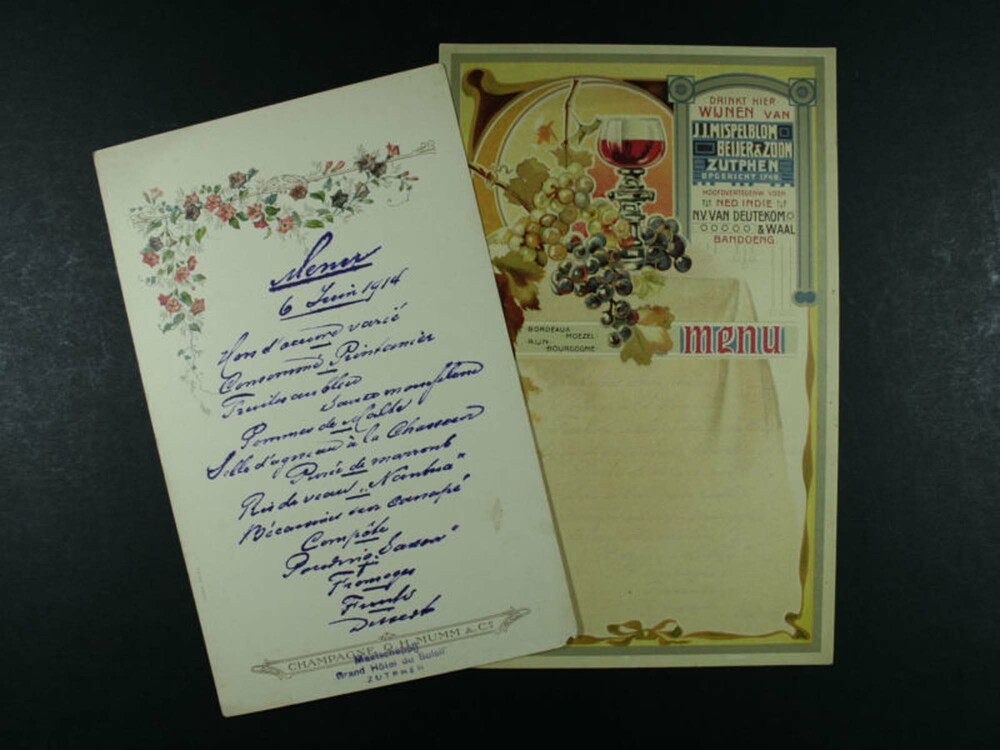 Menu
6 Juin 1914
Hors d'oeuvre varié
Consommé Printanier
Truites au bleu
Sauce mousseline
Pommes de Malte
Selle d'agneau à la Chasseur
Purée de marrons
Ris de veau „Nantua"
Bécassines sur canapé
Compôte
Pouding „Saxon"
Fromages
Fruits
Dessert
CHAMPAGNE G. H. MUMM & Co
Maatschappij
Grand Hôtel du Soleil
ZUTPHEN
DRINKT HIER
WIJNEN VAN
J.J. MISPELBLOM
BEIJER & ZOON
ZUTPHEN
OPGERICHT 1748
HOOFDVERTEGENW. VOOR
NED. INDIE
N.V. VAN DEUTEKOM
& WAAL
BANDOENG
BORDEAUX
MOEZEL-
RIJN-
BOURGOGNE
menu